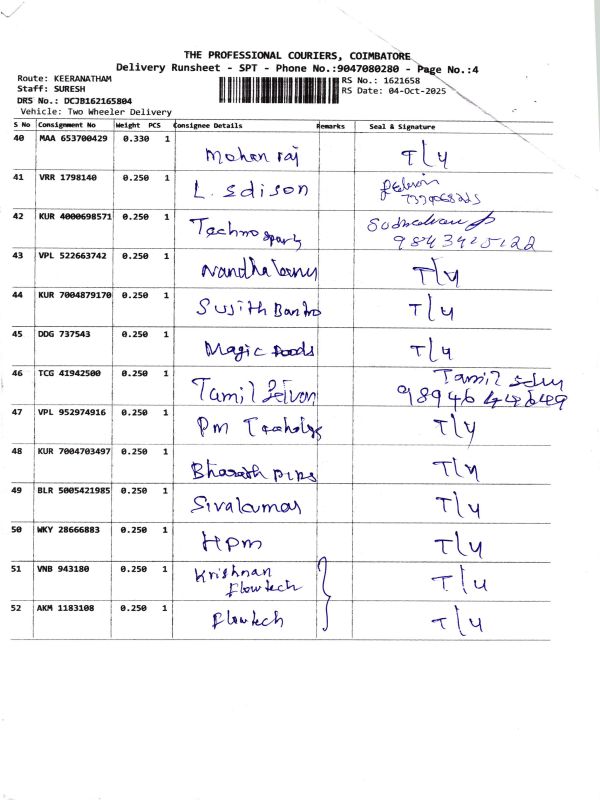 THE PROFESSIONAL COURIERS, COIMBATORE
Delivery Runsheet - SPT - Phone No.:9047080280 - Page No.:4
Route: KEERANATHAM RS No.: 1621658
Staff: SURESH RS Date: 04-Oct-2025
DRS No.: DCJB162165804
Vehicle: Two Wheeler Delivery
S No Consignment No Weight PCS Consignee Details Remarks Seal & Signature
40 MAA 653700429 0.330 1 Mohan raj T/4
41 VRR 1798140 0.250 1 L. Sdison
42 KUR 4000698571 0.250 1 Techno sport 9843425122
43 VPL 522663742 0.250 1 T/4
44 KUR 7004879170 0.250 1 Sujith T/4
45 DDG 737543 0.250 1 Magic T/4
46 TCG 41942500 0.250 1 Tamil Selvan Tamil
9894644649
47 VPL 952974916 0.250 1 Pm T/4
48 KUR 7004703497 0.250 1 Bharath T/4
49 BLR 5005421985 0.250 1 Sivakumar T/4
50 WKY 28666883 0.250 1 HPM T/4
51 VNB 943180 0.250 1 Krishnan T/4
Flowtech
52 AKM 1183108 0.250 1 Flowtech T/4